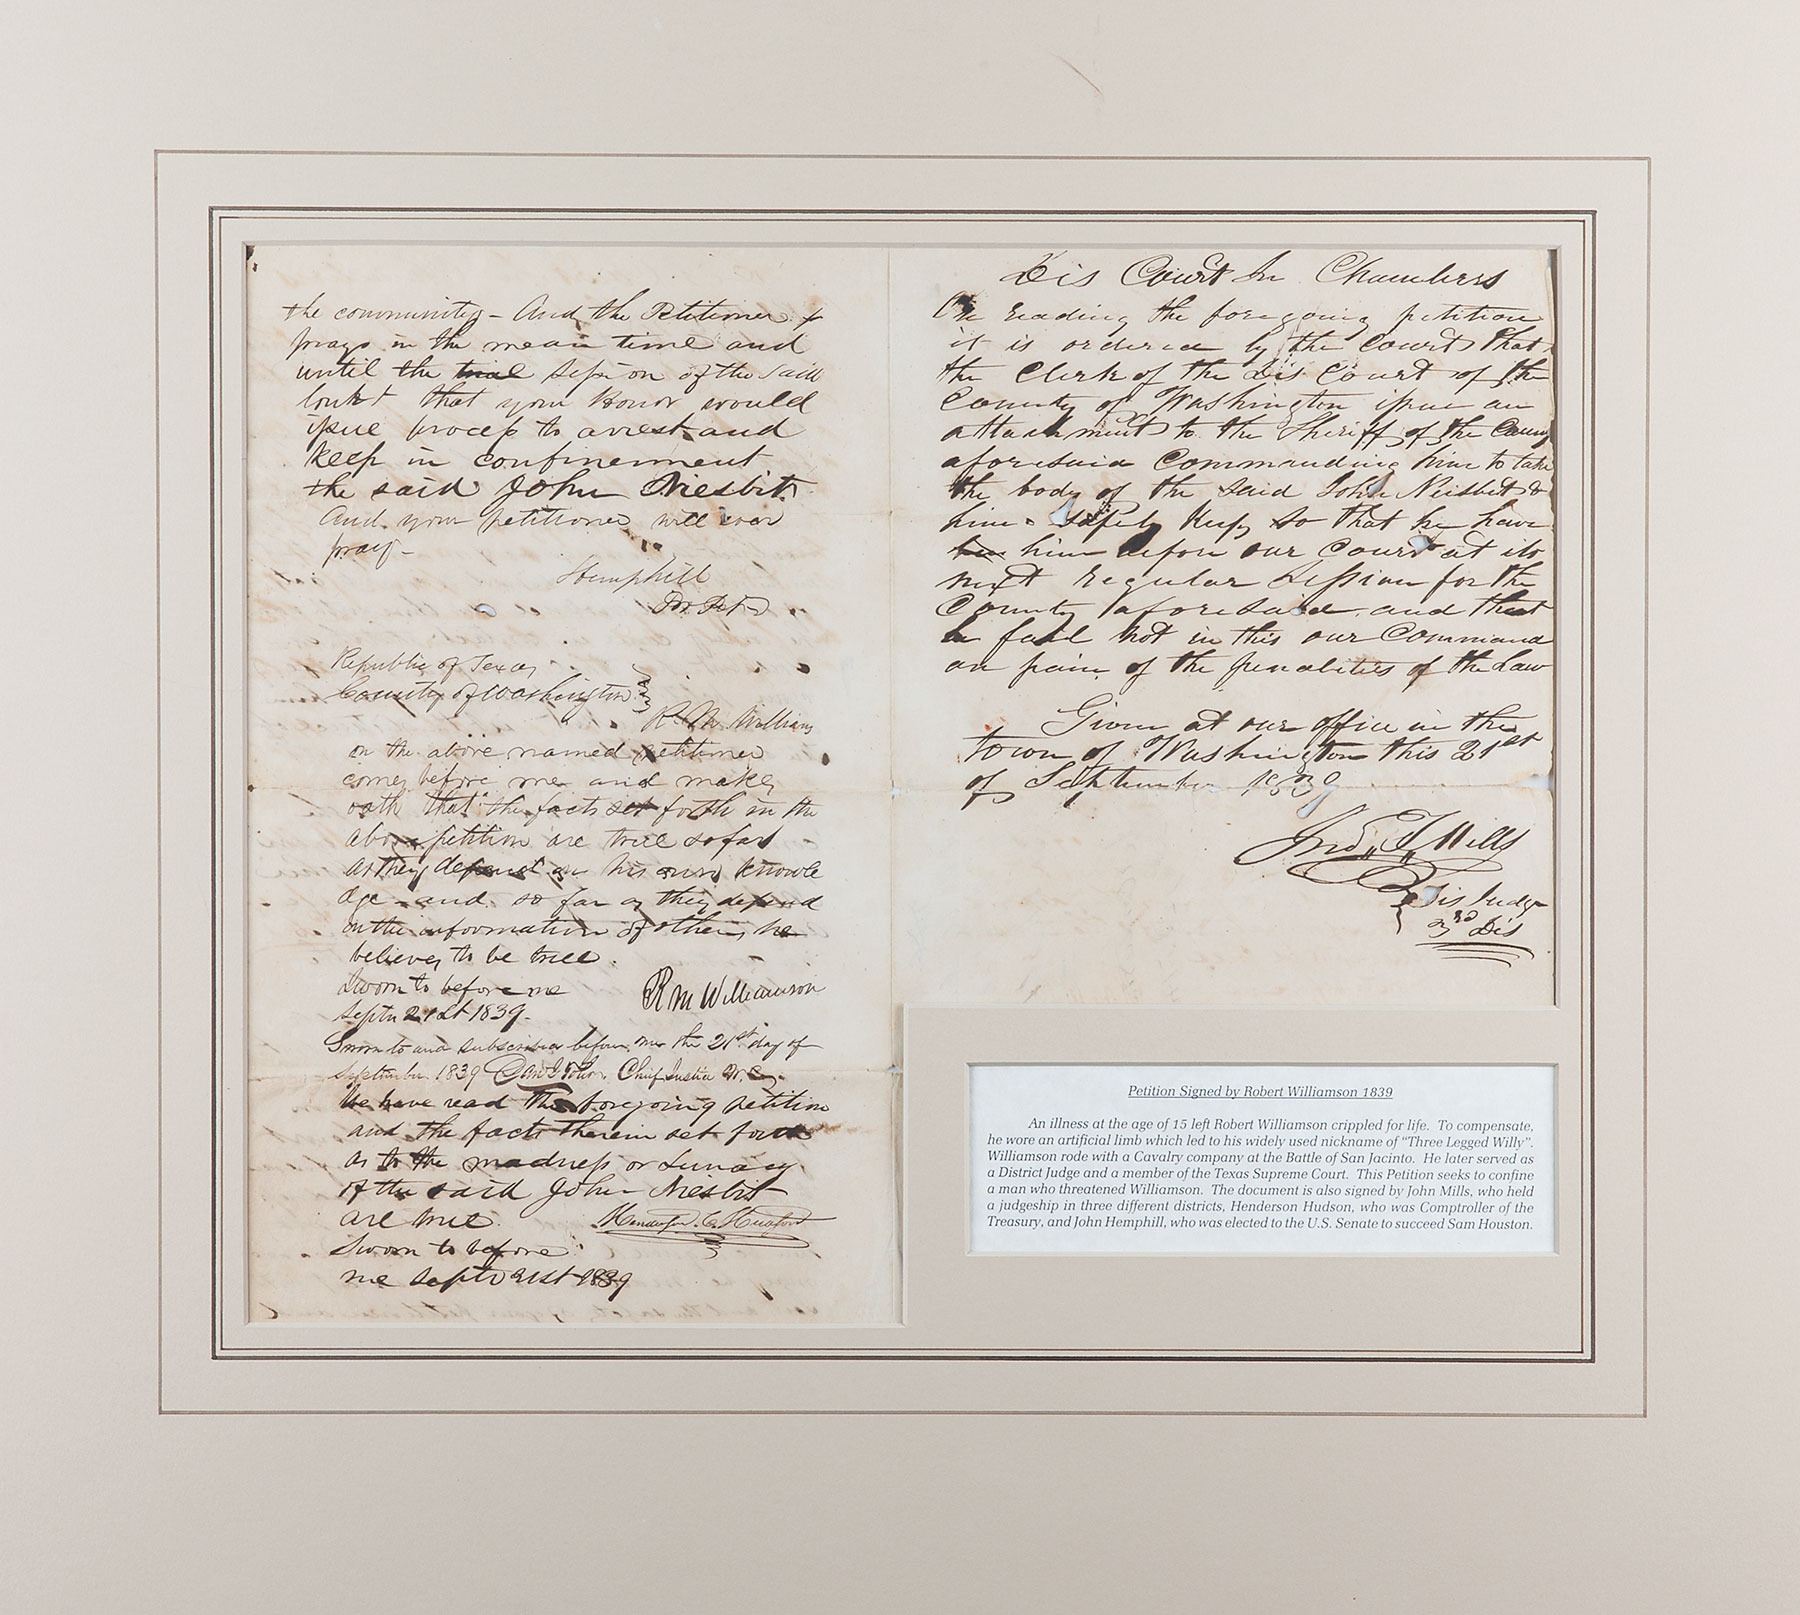 the community - And the Petitioner
prays in the mean time and
until the trial session of the said
Court that your Honor would
issue process to arrest and
keep in confinement
the said John Niesbit.
And your petitioner will ever
pray -
Hemphill
for Petr
Republic of Texas
County of Washington
R. M. Williams
on the above named petitioner
comes before me and makes
oath that the facts set forth in the
above petition are true so far
as they depend on his own knowle
dge - and so far as they depend
on the information of others, he
believes to be true.
Sworn to before me
R M Williamson
Septr 21st 1839.
Sworn to and subscribed before me the 21st day of
September 1839 Chief Justice W. C.
We have read The foregoing petition
and the facts therein set forth
as to the madness or Lunacy
of the said John Niesbit
are true
Henderson
Sworn to before
me Septr 21st 1839
Dis Court In Chambers
On reading the foregoing petition
it is ordered by the Court that
the Clerk of the Dis Court of the
County of Washington issue an
attachment to the Sheriff of the County
aforesaid Commanding him to take
the body of the said John Neisbit &
him safely Keep so that he have
him before our Court at its
next regular Session for the
County aforesaid and that
he fail not in this our Command
on pain of the penalities of the Law
Given at our office in the
town of Washington this 21st
of September 1839
Jno. T. Mills
Dis Judge
3rd Dis
Petition Signed by Robert Williamson 1839
An illness at the age of 15 left Robert Williamson crippled for life. To compensate,
he wore an artificial limb which led to his widely used nickname of "Three Legged Willy".
Williamson rode with a Cavalry company at the Battle of San Jacinto. He later served as
a District Judge and a member of the Texas Supreme Court. This Petition seeks to confine
a man who threatened Williamson. The document is also signed by John Mills, who held
a judgeship in three different districts, Henderson Hudson, who was Comptroller of the
Treasury, and John Hemphill, who was elected to the U.S. Senate to succeed Sam Houston.